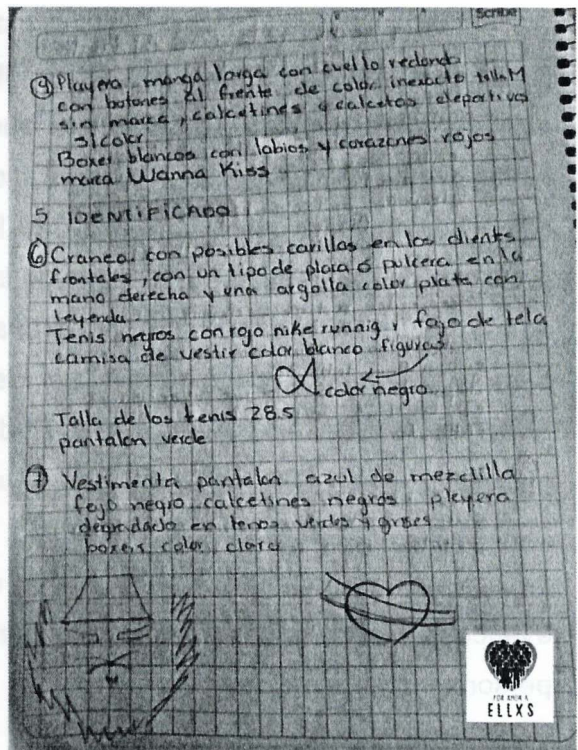 Scribe
④ Playera manga larga con cuello redondo
con botones al frente de color inexacto talla M
sin marca, calcetines y calcetas deportivas
s/color
Boxer blancos con labios y corazones rojos
marca Wanna Kiss
5 IDENTIFICADO
⑥ Craneo con posibles carillas en los dientes
frontales, con un tipo de placa ó pulcera en la
mano derecha y una argolla color plata con
leyenda.
Tenis negros con rojo nike runnig y fajo de tela
camisa de vestir color blanco figuras
color negro
Talla de los tenis 28.5
pantalon verde
⑦ Vestimenta pantalon azul de mezclilla
fajo negro calcetines negros pleyera
degradado en tonos verdes y grises
boxers color claro
POR AMOR A
ELLXS